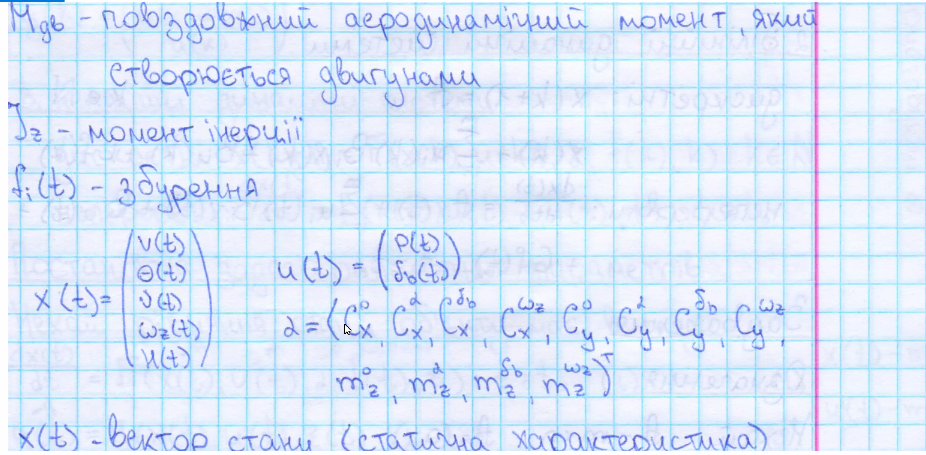 Mдв - повздовжний аеродинамічний момент, який
створюється двигунами
Jz - момент інерції
fi(t) - збурення
x(t) = (V(t) Θ(t) ϑ(t) ωz(t) H(t))   u(t) = (P(t) δb(t))
α = (Cx⁰, Cx^α, Cx^δb, Cx^ωz, Cy⁰, Cy^α, Cy^δb, Cy^ωz,
mz⁰, mz^α, mz^δb, mz^ωz)ᵀ
x(t) - вектор стани (статична характеристика)